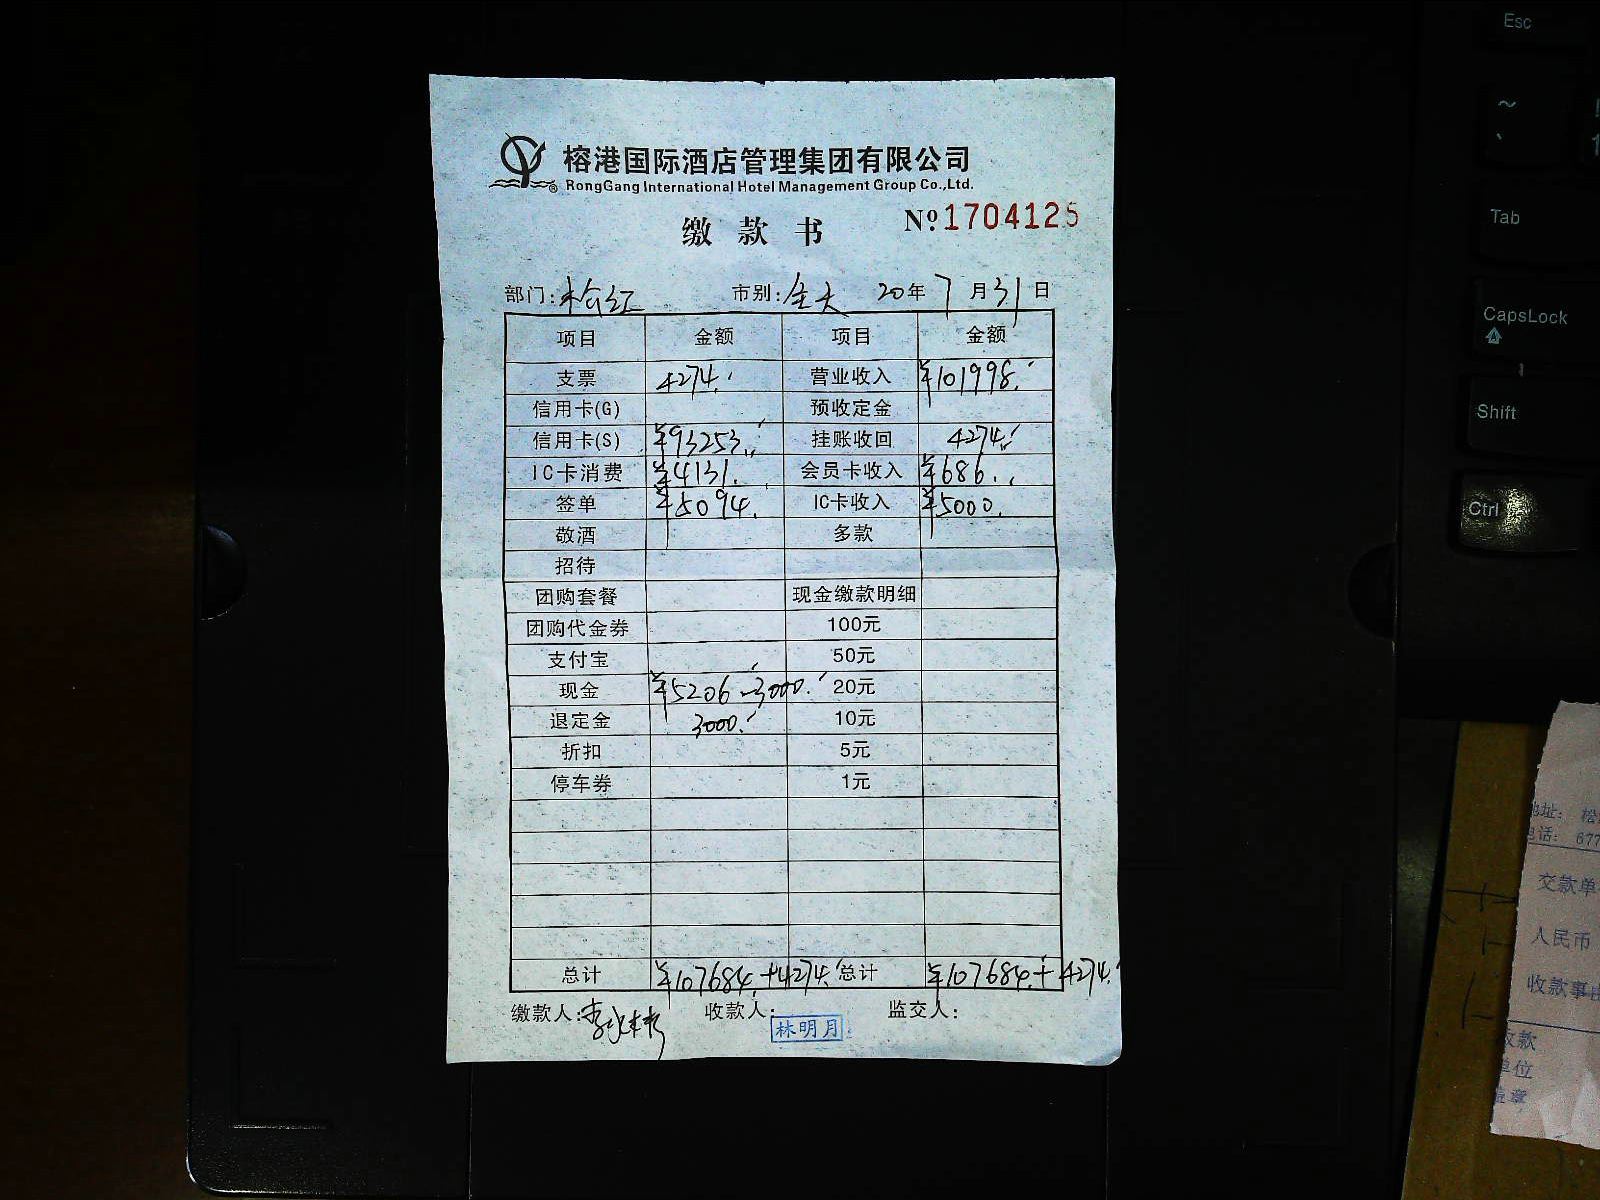 榕港国际酒店管理集团有限公司
RongGang International Hotel Management Group Co.,Ltd.
缴款书 №1704125
部门: 市别:全天 20年7月31日
项目 金额 项目 金额
支票 4274. 营业收入 ¥101998.
信用卡(G) 预收定金
信用卡(S) ¥93253. 挂账收回 4274.
IC卡消费 ¥4131. 会员卡收入 ¥686.
签单 ¥5094. IC卡收入 ¥5000.
敬酒 多款
招待
团购套餐 现金缴款明细
团购代金券 100元
支付宝 50元
现金 ¥5206-3000. 20元
退定金 3000. 10元
折扣 5元
停车券 1元
总计 ¥107684.+4274. 总计 ¥107684.+4274.
缴款人: 收款人: 林明月 监交人:
Esc
~
Tab
CapsLock
Shift
Ctrl
地址: 松
电话: 677
交款单
人民币
收款事由
收款
单位
盖章